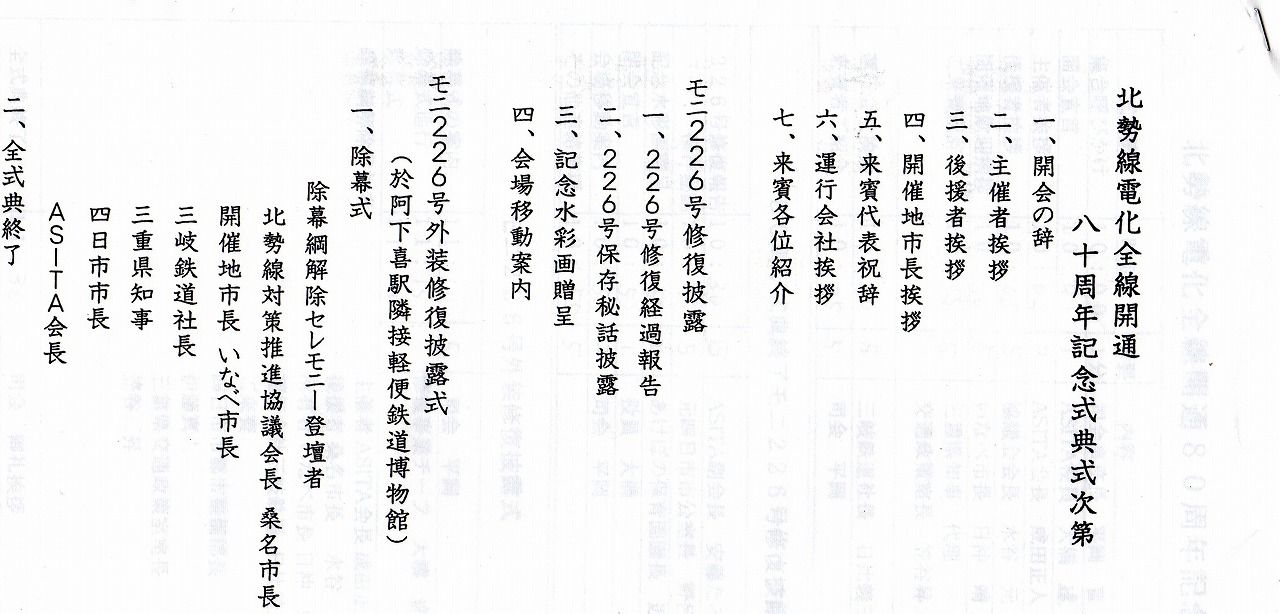 北勢線電化全線開通
八十周年記念式典式次第
一、開会の辞
二、主催者挨拶
三、後援者挨拶
四、開催地市長挨拶
五、来賓代表祝辞
六、運行会社挨拶
七、来賓各位紹介
モニ226号修復披露
一、226号修復経過報告
二、226号保存秘話披露
三、記念水彩画贈呈
四、会場移動案内
モニ226号外装修復披露式
（於阿下喜駅隣接軽便鉄道博物館）
一、除幕式
除幕綱解除セレモニー登壇者
北勢線対策推進協議会長 桑名市長
開催地市長 いなべ市長
三岐鉄道社長
三重県知事
四日市市長
ASITA会長
二、全式典終了